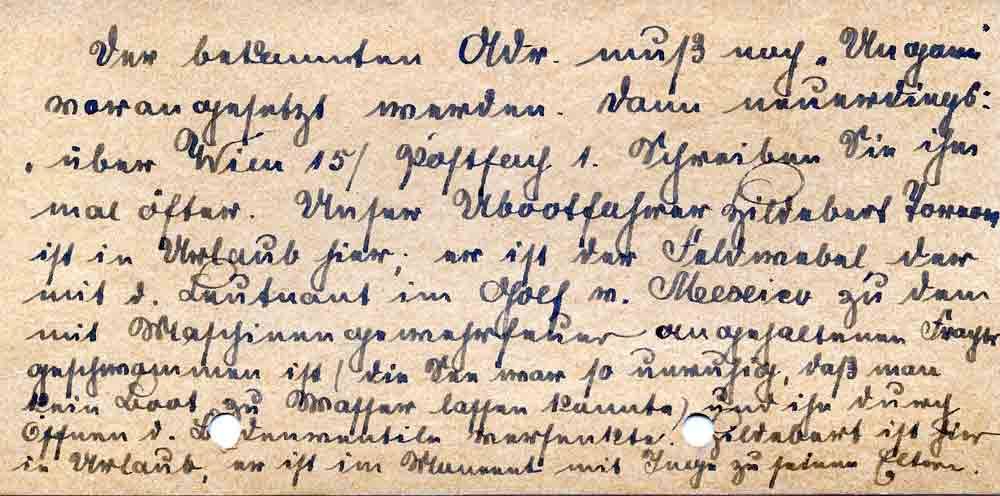 Der bekannten Adr. muß noch „Ungarn"
vorangesetzt werden. Dann neuerdings:
„über Wien 15/ Postfach 1. Schreiben Sie ihm
mal öfter. Unser Ubootfahrer Hildebert
ist in Urlaub hier; er ist der Feldwebel, der
mit d. Leutnant im Golf v. Mexico zu dem
mit Maschinengewehrfeuer angehaltenen Frachter
geschwommen ist (die See war so unruhig, daß man
kein Boot zu Wasser lassen konnte) und ihn durch
Öffnen d. Bodenventile versenkte. Hildebert ist hier
in Urlaub, er ist im Moment mit Inge zu seinen Eltern.